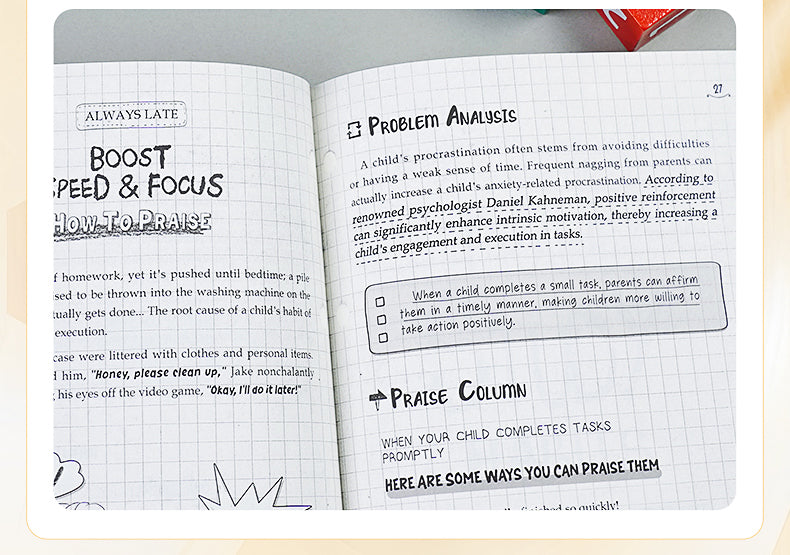 ALWAYS LATE
BOOST
SPEED & FOCUS
HOW TO PRAISE
of homework, yet it's pushed until bedtime; a pile
used to be thrown into the washing machine on the
actually gets done... The root cause of a child's habit of
execution.
case were littered with clothes and personal items.
him, "Honey, please clean up," Jake nonchalantly
his eyes off the video game, "Okay, I'll do it later!"
27
PROBLEM ANALYSIS
A child's procrastination often stems from avoiding difficulties
or having a weak sense of time. Frequent nagging from parents can
actually increase a child's anxiety-related procrastination. According to
renowned psychologist Daniel Kahneman, positive reinforcement
can significantly enhance intrinsic motivation, thereby increasing a
child's engagement and execution in tasks.
When a child completes a small task, parents can affirm
them in a timely manner, making children more willing to
take action positively.
PRAISE COLUMN
WHEN YOUR CHILD COMPLETES TASKS
PROMPTLY
HERE ARE SOME WAYS YOU CAN PRAISE THEM
finished so quickly!